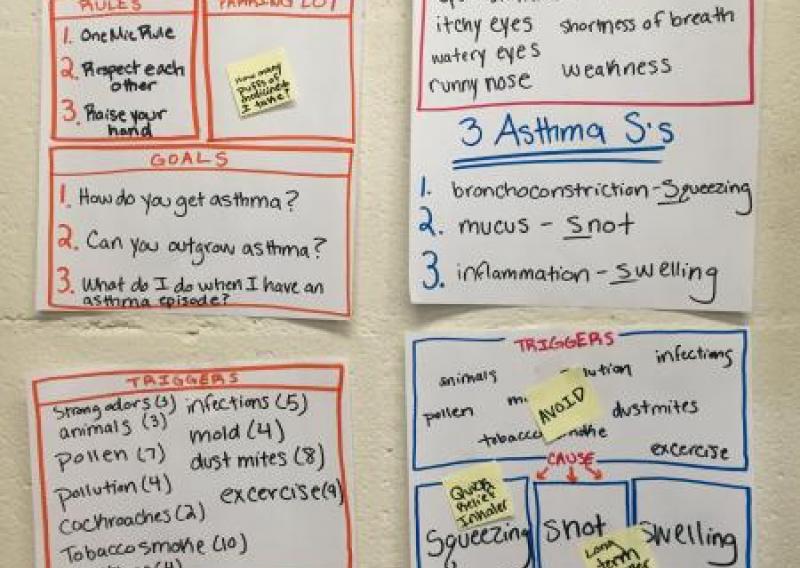 RULES
1. One Mic Rule
2. Respect each
other
3. Raise your
hand
PARKING LOT
How many
puffs of
medicine do
I take?
GOALS
1. How do you get asthma?
2. Can you outgrow asthma?
3. What do I do when I have an
asthma episode?
itchy eyes shortness of breath
watery eyes
runny nose weakness
3 Asthma S's
1. bronchoconstriction - Squeezing
2. mucus - snot
3. inflammation - swelling
TRIGGERS
strong odors (3) infections (5)
animals (3) mold (4)
pollen (7) dust mites (8)
pollution (4) excercise (9)
cockroaches (2)
Tobacco smoke (10)
TRIGGERS
animals lution infections
pollen m dustmites
AVOID
tobacco smoke excercise
CAUSE
Quick
Relief
Inhaler
Squeezing snot swelling
Long
term